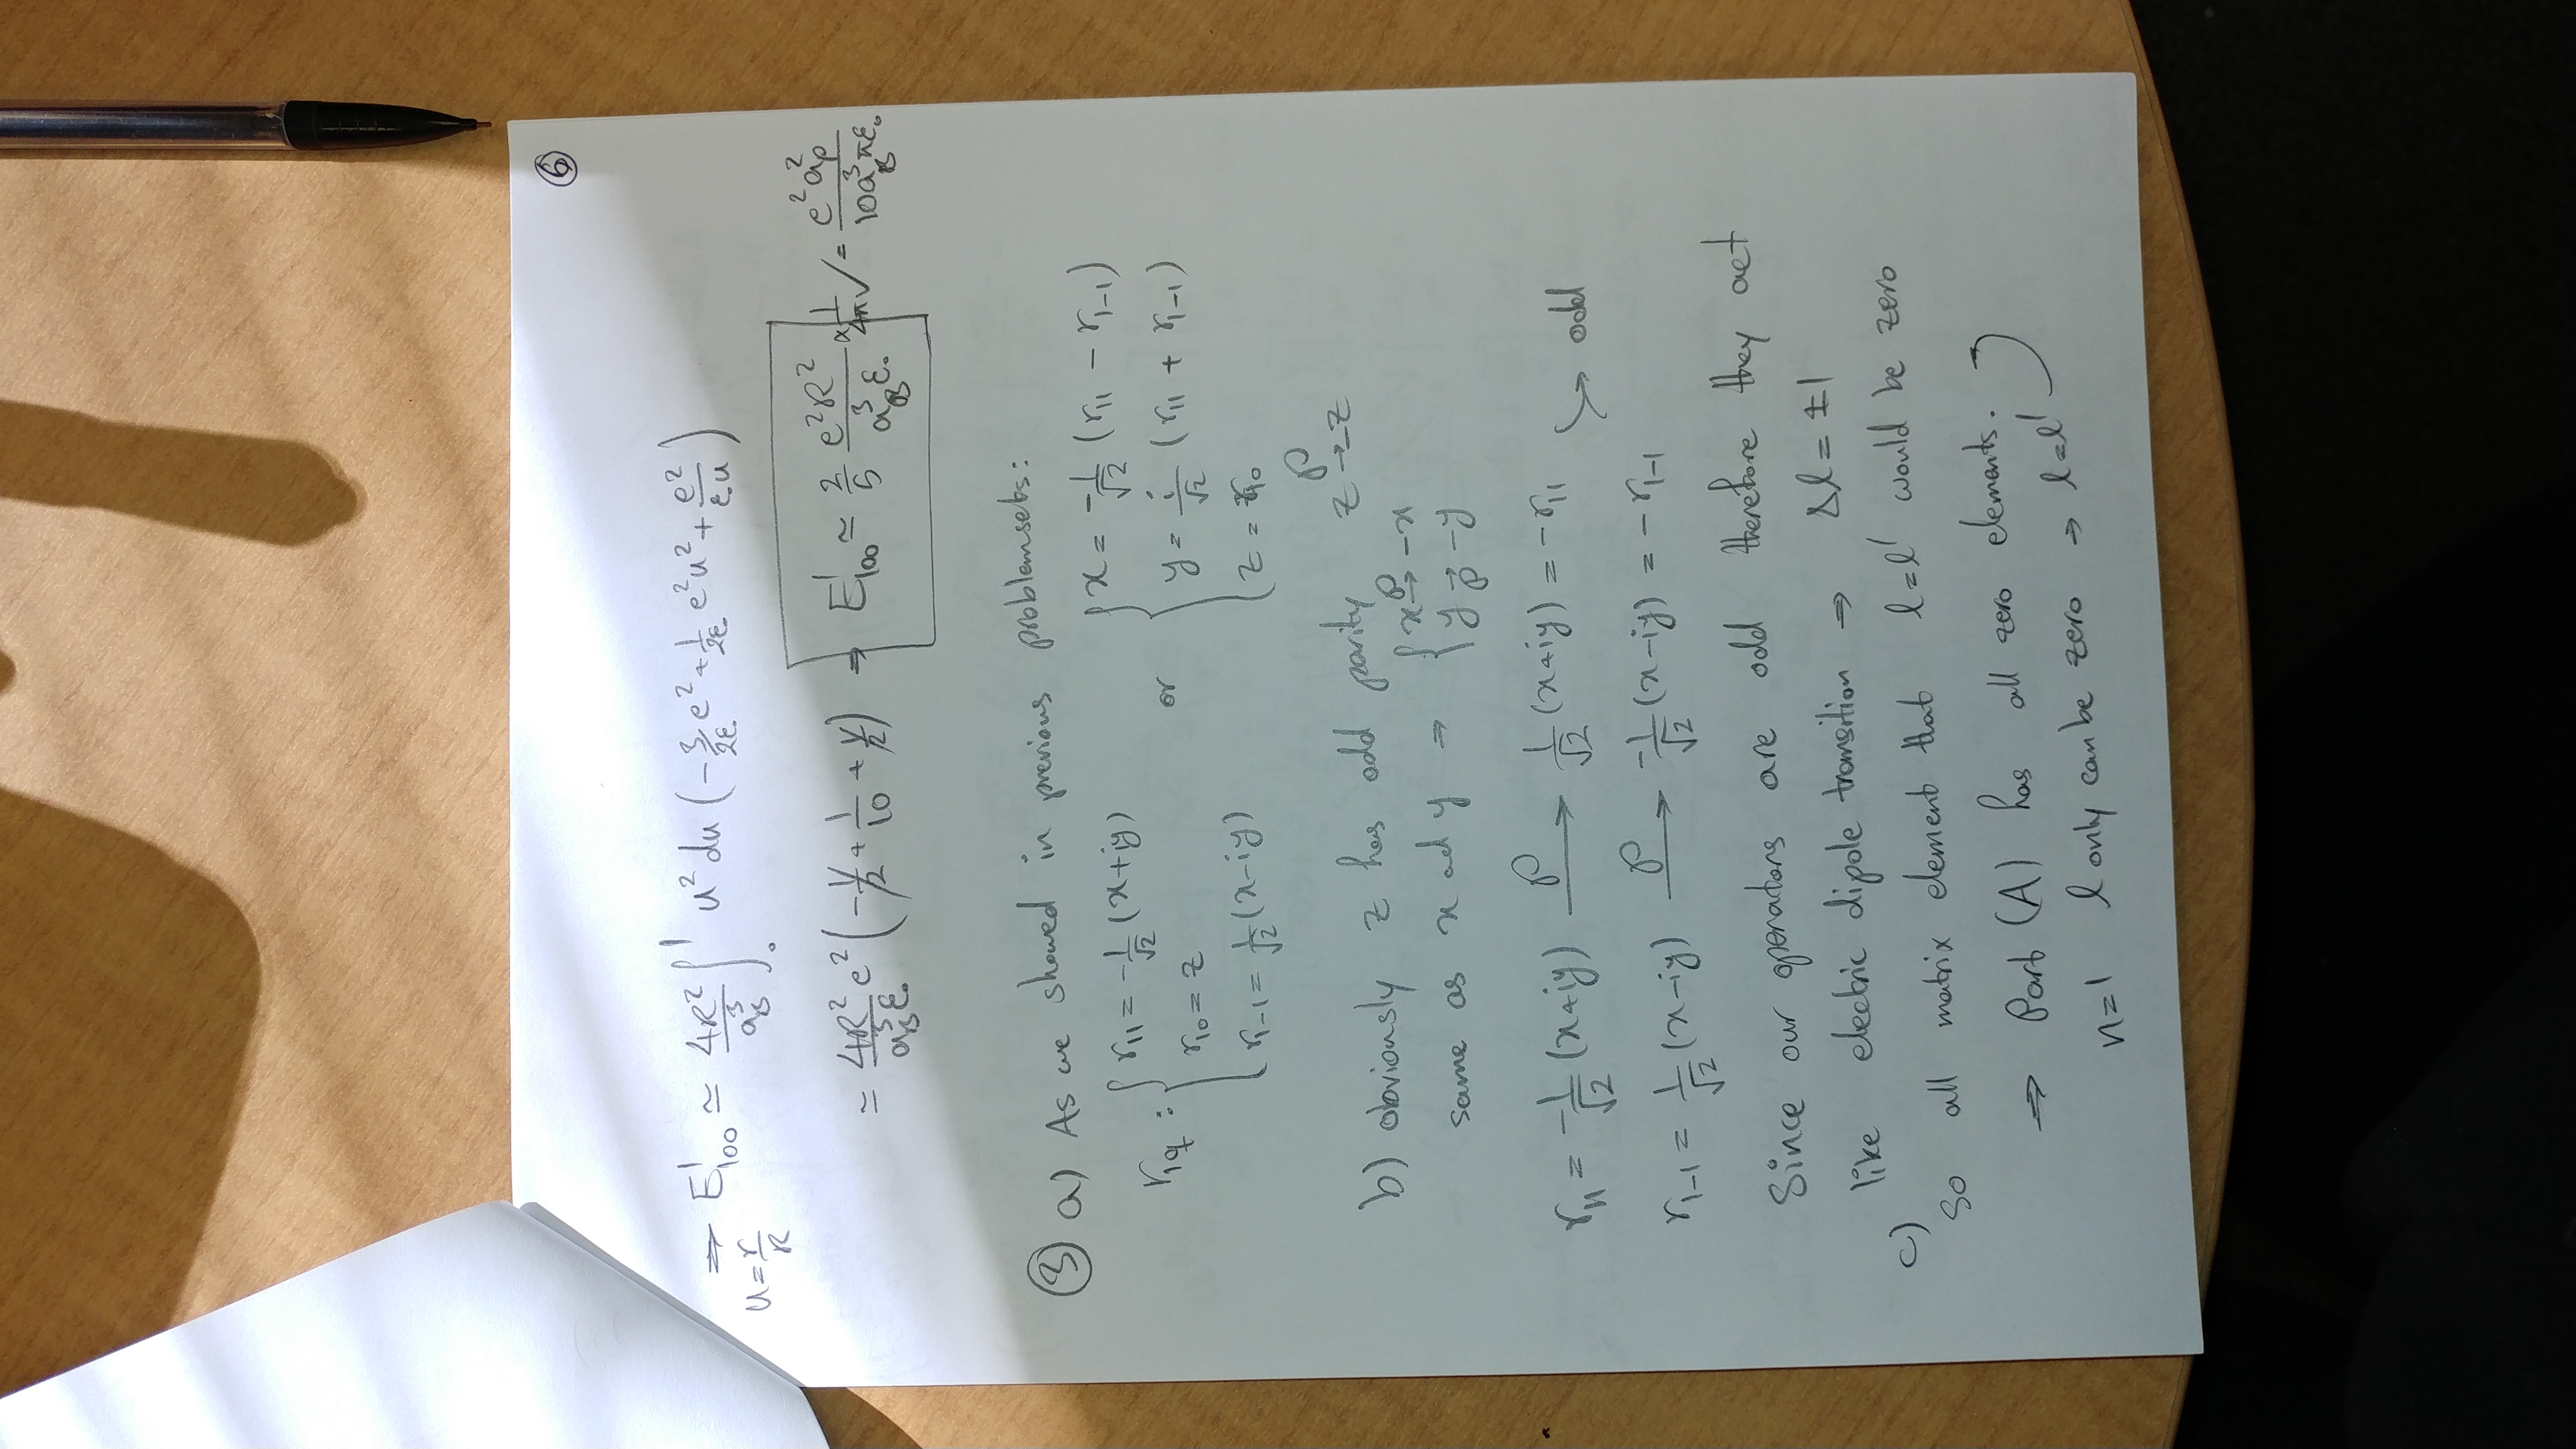 ⑥
⇒ E¹₁₀₀ ≃ 4R²/a_B³ ∫₀¹ u² du (-3/2ε₀ e² + 1/2ε₀ e²u² + e²/ε₀u)
u = r/R
≃ 4R²/a_B³ε₀ e² (-1/2 + 1/10 + 1/2) ⇒ E¹₁₀₀ ≃ 2/5 e²R²/a_B³ε₀ × 1/4π ✓ = e²a_p²/10a_B³πε₀
③ a) As we showed in previous problemsets:
r₁q : { r₁₁ = -1/√2 (x+iy) or { x = -1/√2 (r₁₁ - r₁₋₁)
r₁₀ = z y = i/√2 (r₁₁ + r₁₋₁)
r₁₋₁ = 1/√2 (x-iy) z = r₁₀
b) obviously z has odd parity z →P -z
same as x ad y ⇒ { x →P -x
y →P -y
r₁₁ = -1/√2 (x+iy) →P 1/√2 (x+iy) = -r₁₁ ↘→ odd
r₁₋₁ = 1/√2 (x-iy) →P -1/√2 (x-iy) = -r₁₋₁
Since our operators are odd therefore they act
like electric dipole transition ⇒ Δl = ±1
c)
So all matrix element that l=l' would be zero
⇒ Part (A) has all zero elements.
n=1 l only can be zero → l=l'